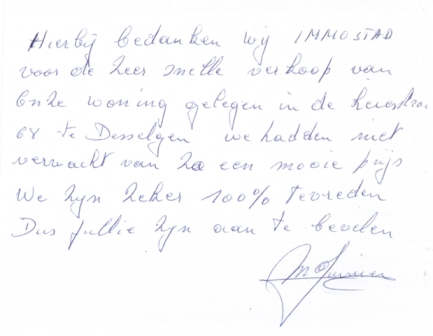 Hierbij bedanken wij IMMOSTAD
voor de zeer snelle verkoop van
onze woning gelegen in de
68 te Desselgen we hadden niet
verwacht van zo een mooie prijs
We zijn zeker 100% tevreden
Dus jullie zijn aan te bevelen